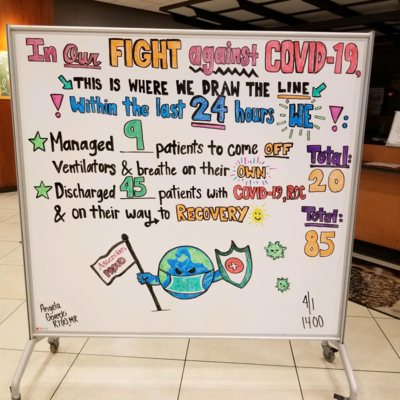 In Our FIGHT against COVID-19,
THIS IS WHERE WE DRAW THE LINE
! Within the last 24 hours WE !:
Managed 9 patients to come OFF
Ventilators & breathe on their OWN
Total:
20
Discharged 45 patients with COVID-19, ROC
& on their way to RECOVERY
Total:
85
Ascension
PROUD
Angela
RT(R), MR
4/1
1400